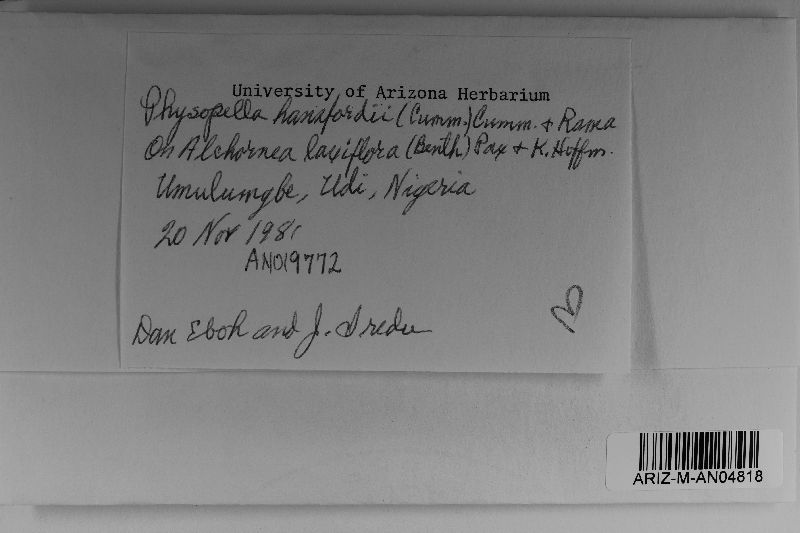 University of Arizona Herbarium
Physopella hansfordii (Cumm.) Cumm. & Rama
On Alchornea laxiflora (Benth) Pax & K. Hoffm.
Umulumgbe, Udi, Nigeria
20 Nov 1981
AN019772
Dan Eboh and J.
ARIZ-M-AN04818